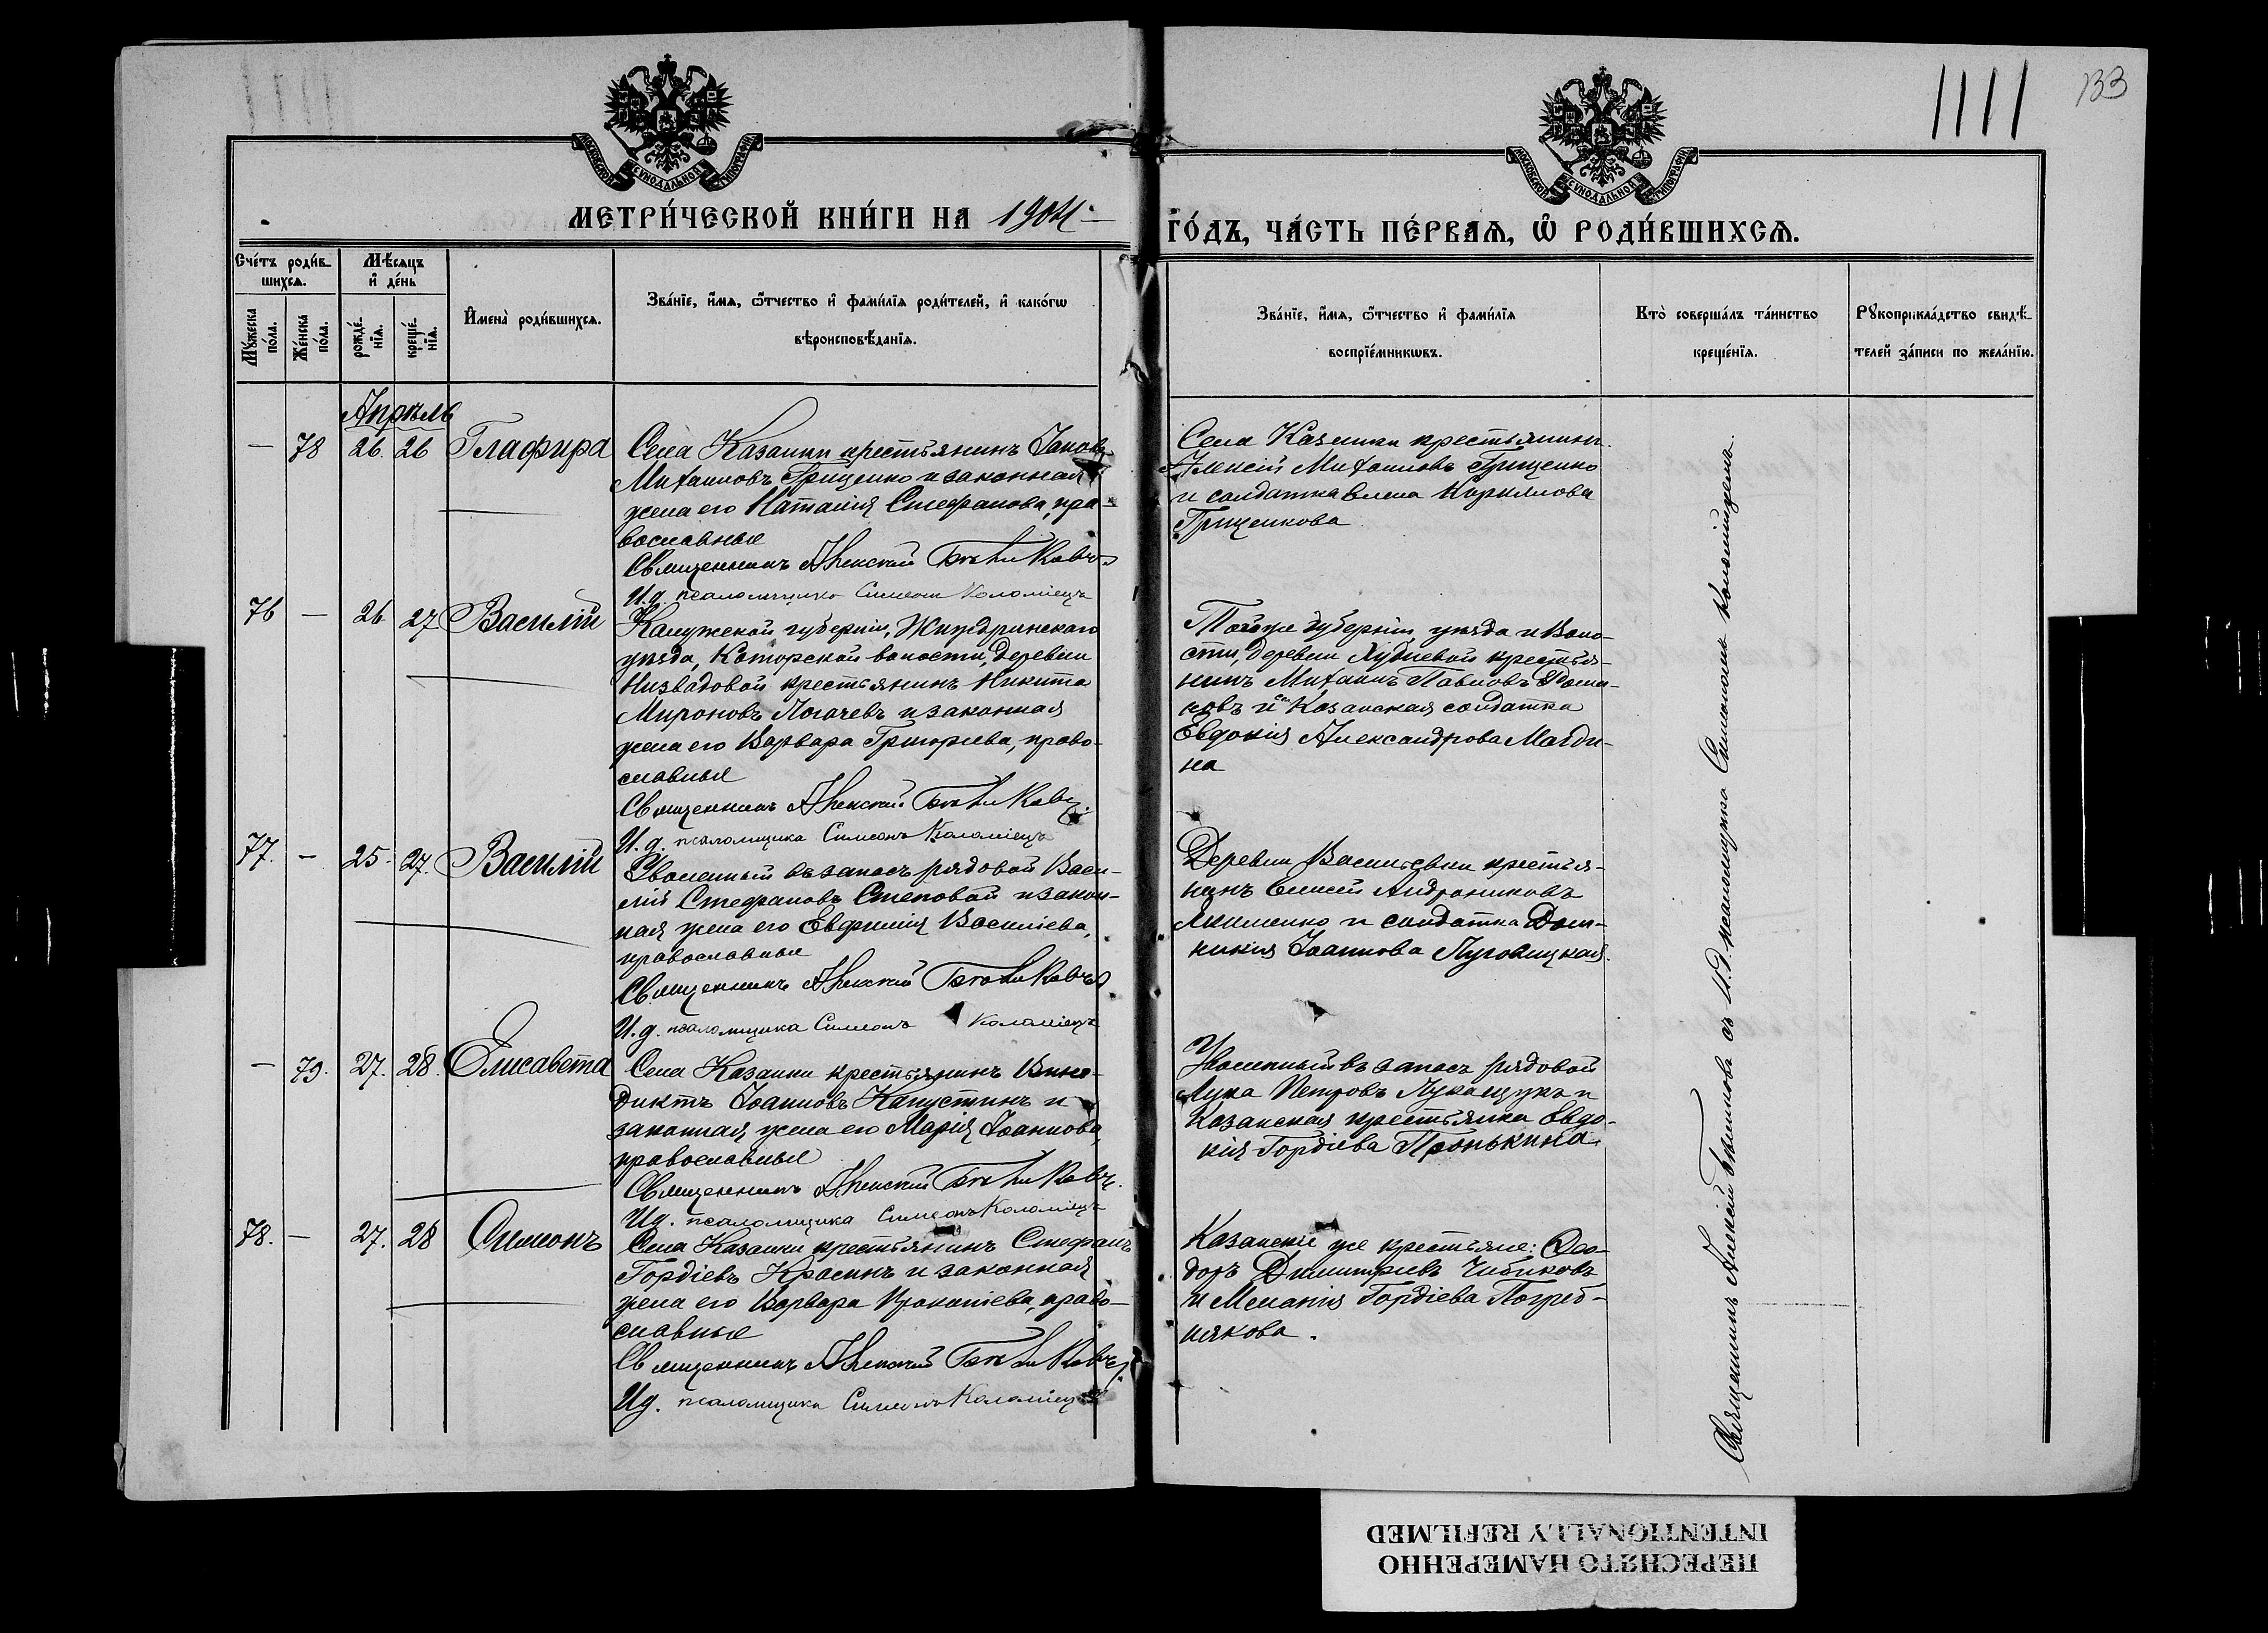 1111
133
МОСКОВСКОЙ СѴНОДАЛЬНОЙ ТИПОГРАФІИ
МОСКОВСКОЙ СѴНОДАЛЬНОЙ ТИПОГРАФІИ
МЕТРИ́ЧЕСКОЙ КНИ́ГИ НА 1904
ГО́ДЪ, ЧА́СТЬ ПЕ́РВАѦ, Ѡ҆ РОДИ́ВШИХСѦ.
Сче́тъ роди́в-
шихсѧ.
Мѣ́сѧцъ
и҆ де́нь
Мꙋ́жеска
по́ла.
Же́нска
по́ла.
рожде́-
нїѧ.
креще́-
нїѧ.
И҆мена̀ роди́вшихсѧ.
Зва́нїе, и҆́мѧ, ѻ҆́тчество и҆ фами́лїѧ роди́телей, и҆ како́гѡ
вѣроисповѣ́данїѧ.
Зва́нїе, и҆́мѧ, ѻ҆́тчество и҆ фами́лїѧ
воспрїе́мникѡвъ.
Кто̀ соверша́лъ та́инство
креще́нїѧ.
Рꙋкоприкла́дство свидѣ́-
телей за́писи по жела́нїю.
Апрѣль
— 78 26. 26 Глафира
Села Казанки крестьянинъ Іаковъ
Михаиловъ Грищенко и законная
жена его Наталія Стефанова, пра-
вославные
Священникъ Алексій
И.д. псаломщика Симеонъ Коломіецъ
Села Казанки крестьянинъ
Алексій Михаиловъ Грищенко
и солдатка Елена Кириллова
Грищенкова
76 — 26 27 Василій
Калужской губерніи, Жиздринскаго
уѣзда, Которской волости, деревни
крестьянинъ Никита
Мироновъ Логачевъ и законная
жена его Варвара Григорьева, право-
славные
Священникъ Алексій
И.д. псаломщика Симеонъ Коломіецъ
Той же губерніи, уѣзда и воло-
сти, деревни крестья-
нинъ Михаилъ Павловъ
и Казанская солдатка
Евдокія Александрова
на
77. — 25. 27. Василій
Уволенный въ запасъ рядовой Васи-
лій Стефановъ Степовой и закон-
ная жена его Евфимія Василіева,
православные
Священникъ Алексій
И.д. псаломщика Симеонъ Коломіецъ
Деревни Васильевки крестья-
нинъ Елисей Андрониковъ
Якименко и солдатка Дом-
никія Іоаннова Пуговицкая.
— 79. 27. 28. Елисавета
Села Казанки крестьянинъ Вине-
диктъ Іоанновъ Капустинъ и
законная жена его Марія Іоаннова,
православные
Священникъ Алексій
И.д. псаломщика Симеонъ Коломіецъ
Уволенный въ запасъ рядовой
Лука Петровъ Лукащукъ и
Казанская крестьянка Евдо-
кія Гордіева Пронькина.
78. — 27. 28 Симеонъ
Села Казанки крестьянинъ Стефанъ
Гордіевъ Красинъ и законная
жена его Варвара Прокопіева, право-
славные
Священникъ Алексій
И.д. псаломщика Симеонъ Коломіецъ
Казанскіе же крестьяне: Ѳео-
доръ Димитріевъ Чибиковъ
и Меланія Гордіева Погреб-
някова.
Священникъ Алексій съ И.д. псаломщика Симеономъ Коломійцемъ.
ПЕРЕСНЯТО НАМЕРЕННО
INTENTIONALLY REFILMED